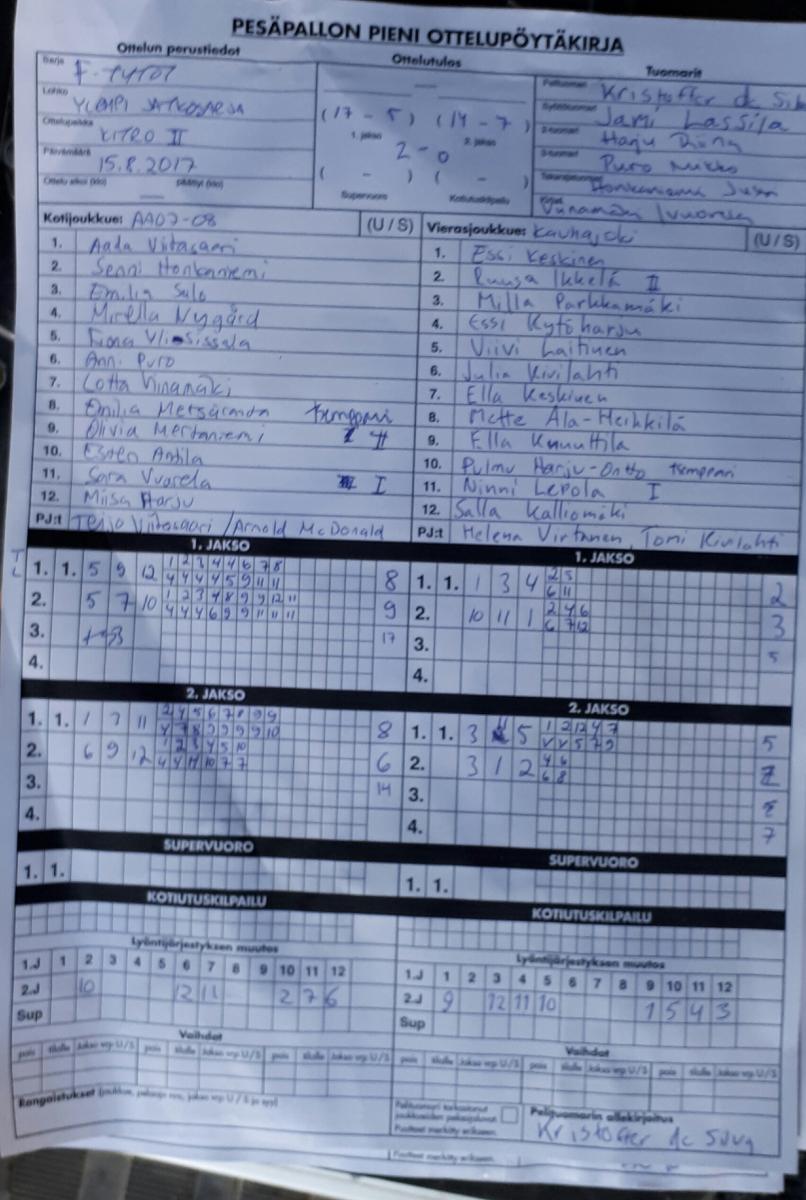 PESÄPALLON PIENI OTTELUPÖYTÄKIRJA
Ottelun perustiedot
Ottelutulos
Tuomarit
Sarja F-TYTÖT
Lohko YLEMPI JATKOSARJA
Ottelupaikka KITRO II
Päivämäärä 15.8.2017
(17 - 5) (14 - 7)
1. jakso 2. jakso
2 - 0
( - ) ( - )
Supervuoro Kotiutuskilpailu
Pelituomari Kristoffer de
Syöttötuomari Jami Lassila
2-tuomari Harju
3-tuomari Puro Mikko
Kotijoukkue: AA07-08 (U / S)
1. Aada Viitasaari
2. Senni Honkaniemi
3. Emilia Salo
4. Mirella Nygård
5.
6. Anni Puro
7. Lotta Viinamäki
8. tsemppari
9. Olivia Mertaniemi II
10. Esteri Antila
11. Sara Vuorela I
12. Miisa Harju
PJ:t Teijo Viitasaari / Arnold McDonald
Vierasjoukkue: Kauhajoki (U / S)
1. Essi Keskinen
2. Ruusa Ikkelä II
3. Milla Parkkamäki
4. Essi Kytöharju
5. Viivi Laitinen
6. Julia Kivilahti
7. Ella Keskinen
8. Mette Ala-Heikkilä
9. Ella Knuuttila
10. Pulmu Harju-Ontto tsemppari
11. Ninni Lepola I
12. Salla Kalliomäki
PJ:t Helena Virtanen, Toni Kivilahti
1. JAKSO
1. 1. 5 9 12 1 2 3 4 4 6 7 8 8
4 4 4 4 5 9 11 11
2. 5 7 10 1 2 3 4 8 9 9 12 11 9
4 4 4 6 9 9 11 11 11
3. 17
4.
1. JAKSO
1. 1. 1 3 4 2 5 2
6 11
2. 10 11 1 2 4 6 3
6 7 12
3. 5
4.
2. JAKSO
1. 1. 1 7 11 2 4 5 6 7 8 9 9 8
4 7 8 9 9 9 9 10
2. 6 9 12 1 2 3 4 5 10 6
4 4 4 10 7 7
3. 14
4.
2. JAKSO
1. 1. 3 5 1 2 12 4 7 5
5 7 9
2. 3 1 2 4 6
6 8
3.
4. 7
SUPERVUORO
1. 1.
SUPERVUORO
1. 1.
KOTIUTUSKILPAILU
KOTIUTUSKILPAILU
Lyöntijärjestyksen muutos
1.J 1 2 3 4 5 6 7 8 9 10 11 12
2.J 10 12 11 2 7 6
Sup
Lyöntijärjestyksen muutos
1.J 1 2 3 4 5 6 7 8 9 10 11 12
2.J 9 12 11 10 1 5 4 3
Sup
Vaihdot
pois tilalle Jakso vrp U/S pois tilalle Jakso vrp U/S pois tilalle Jakso vrp U/S
Vaihdot
pois tilalle Jakso vrp U/S pois tilalle Jakso vrp U/S pois tilalle Jakso vrp U/S
Rangaistukset
Pelituomarin allekirjoitus
Kristoffer de Silva